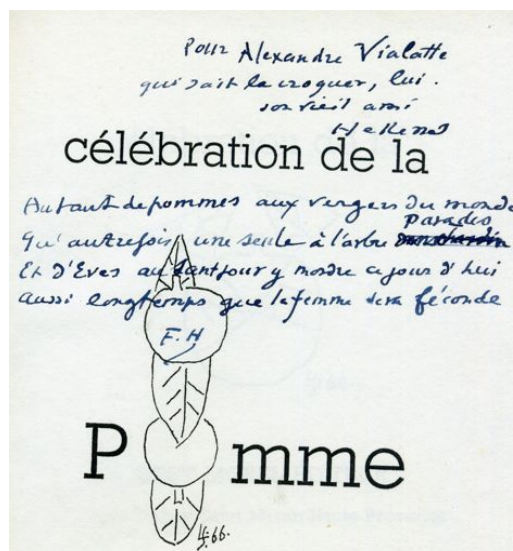 Pour Alexandre Vialatte
qui sait la croquer, lui.
son vieil ami
Hellens
célébration de la
Autant de pommes aux vergers du monde
Paradis
Qu'autrefois une seule à l'arbre
Et d'Eves autant pour y mordre aujourd'hui
aussi longtemps que la femme sera féconde
F.H
P mme
66.